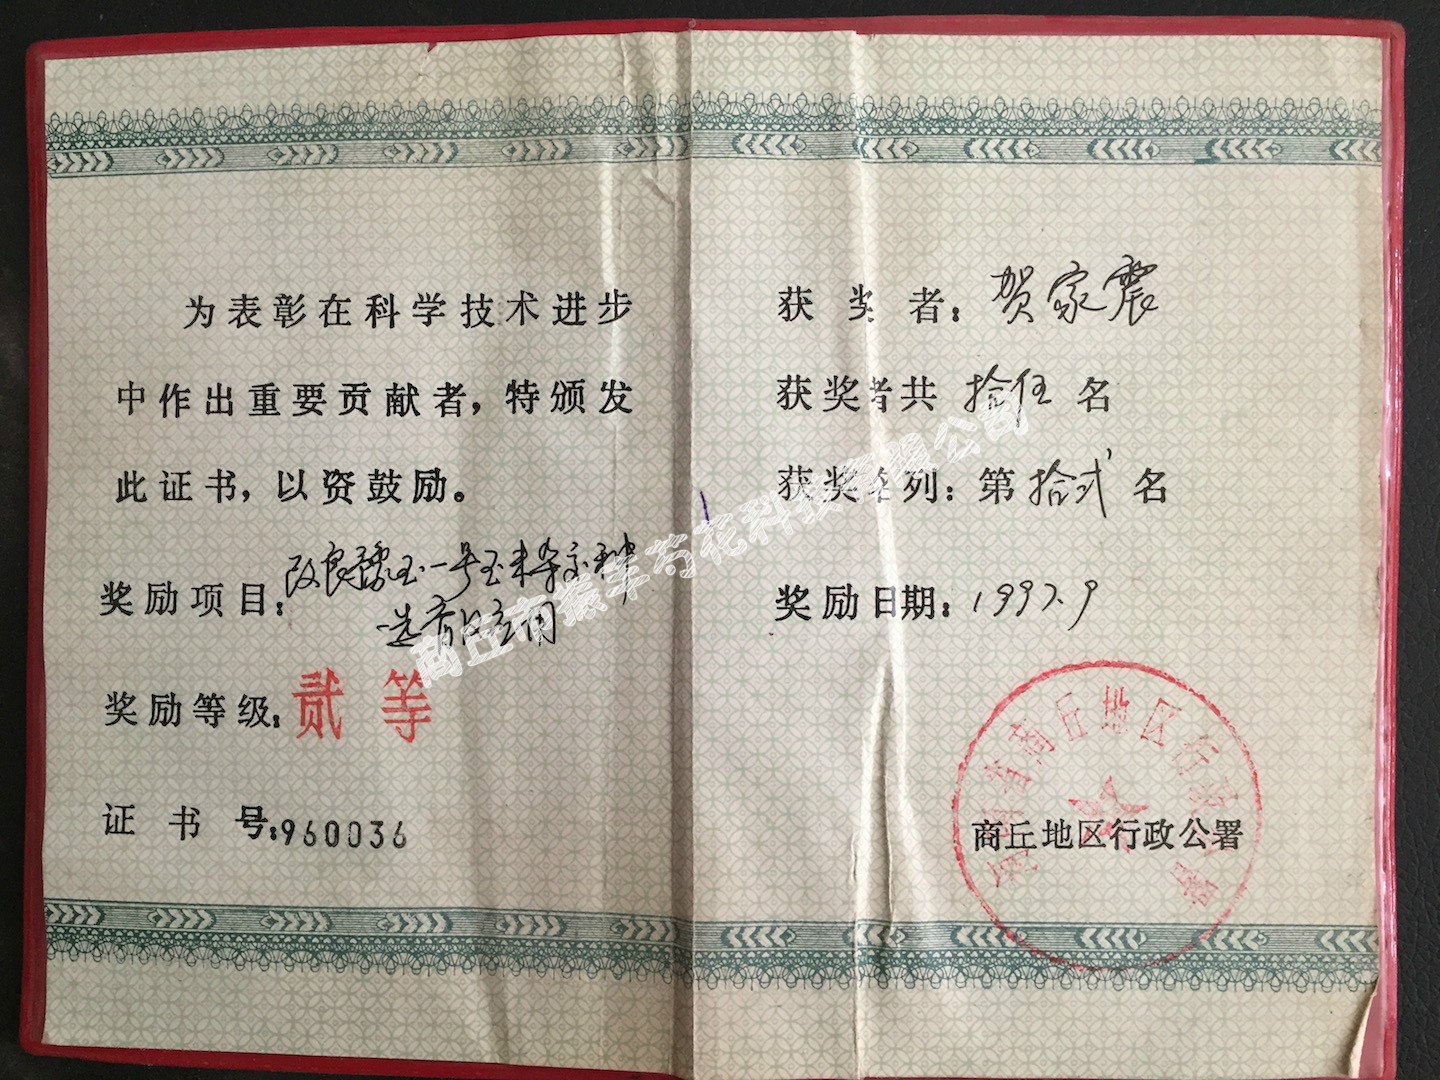 为表彰在科学技术进步
中作出重要贡献者，特颁发
此证书，以资鼓励。
奖励项目：改良豫玉一号玉米杂交种
选育及应用
奖励等级：贰等
证书号：960036
获奖者：贺家震
获奖者共拾伍名
获奖名列：第拾弍名
奖励日期：1997.9
河南省商丘地区行政公署
商丘地区行政公署
商丘市振洋芍花科技有限公司